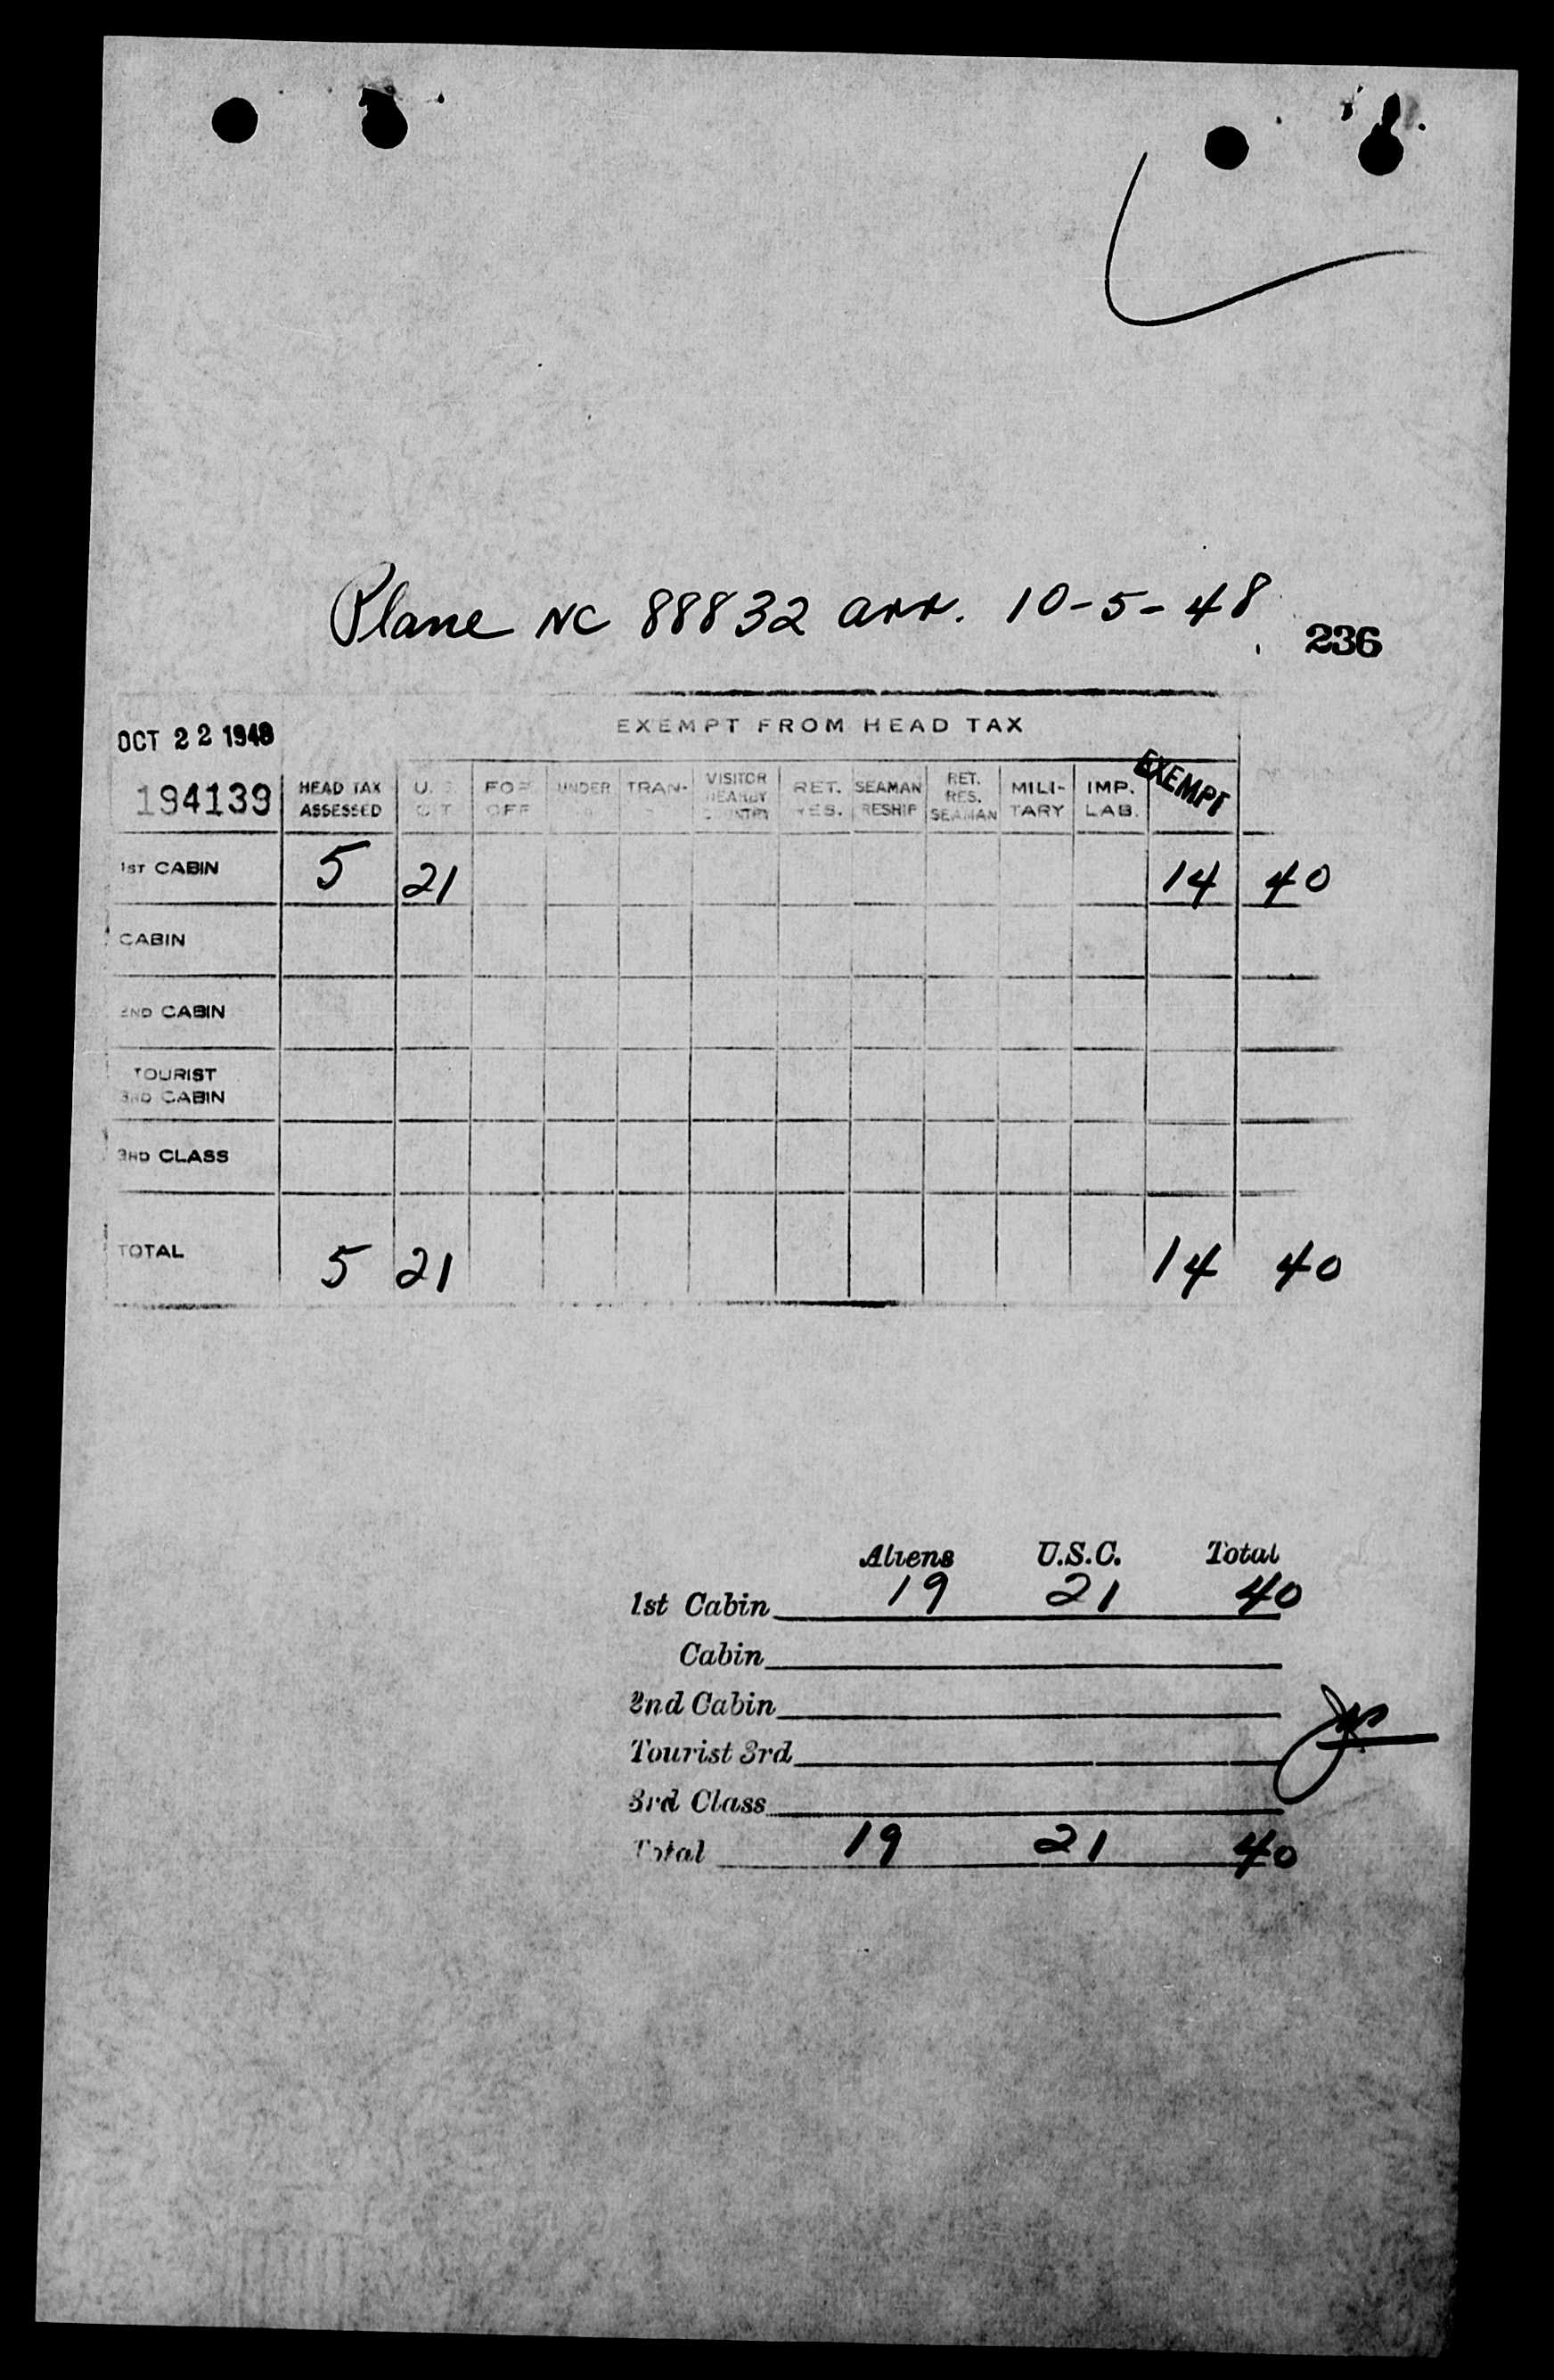 Plane NC 88832 arr. 10-5-48
236
OCT 22 1948
EXEMPT FROM HEAD TAX
194139 HEAD TAX ASSESSED U. CIT FOR OFF UNDER TRAN- VISITOR NEARBY COUNTRY RET. RES. SEAMAN RESHIP RET. RES. SEAMAN MILI- TARY IMP. LAB. EXEMPT
1ST CABIN 5 21 14 40
CABIN
2ND CABIN
TOURIST
3RD CABIN
3RD CLASS
TOTAL 5 21 14 40
Aliens U.S.C. Total
1st Cabin 19 21 40
Cabin
2nd Cabin
Tourist 3rd
3rd Class
Total 19 21 40